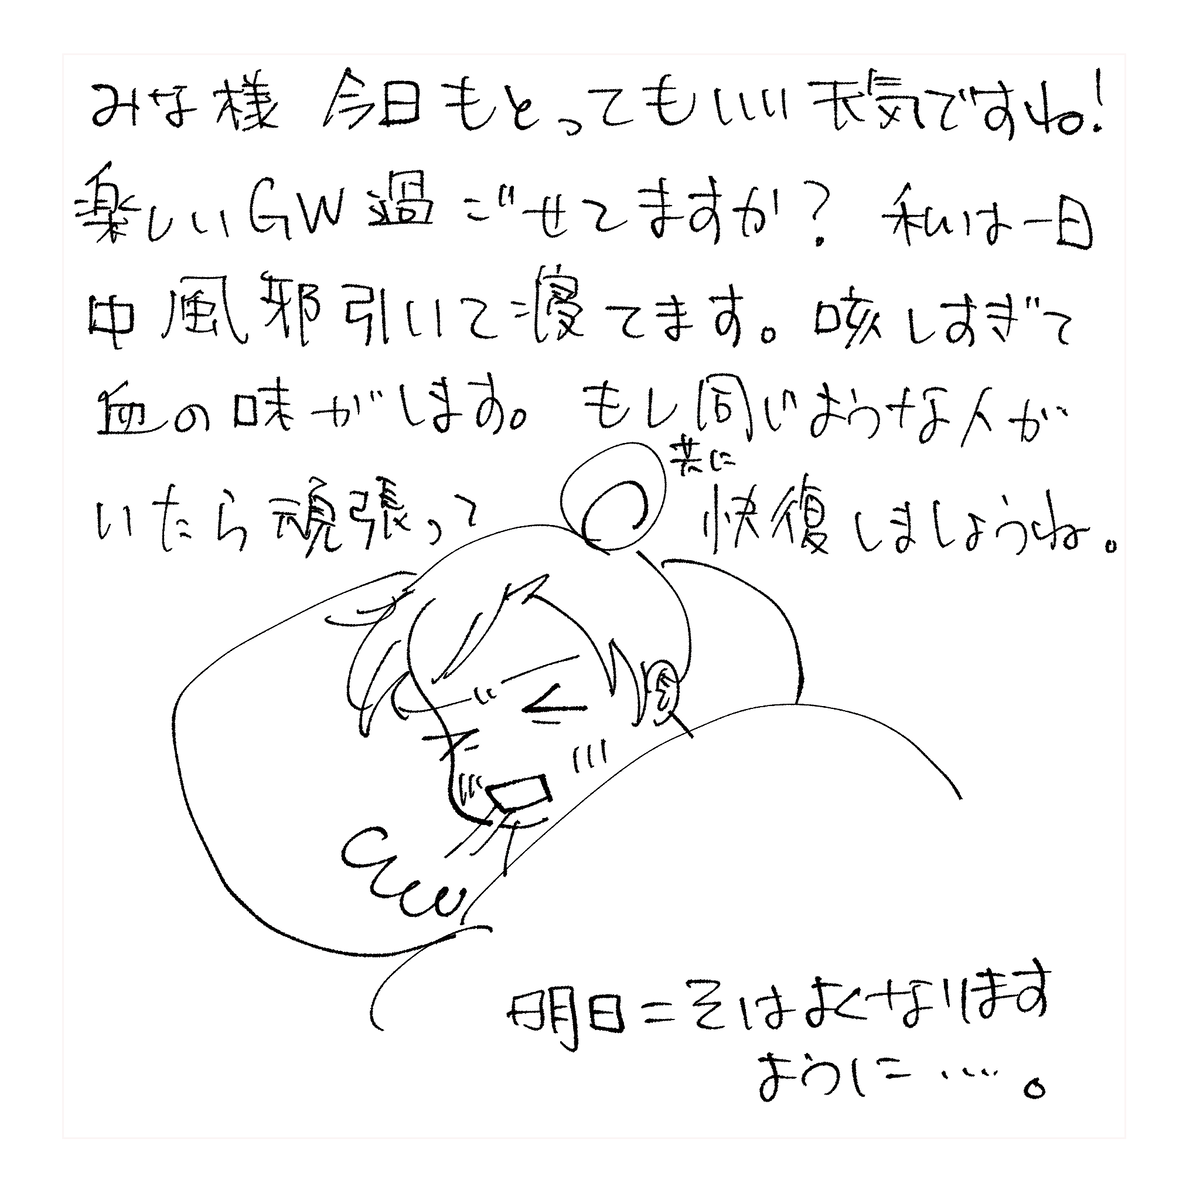 みな様 今日もとってもいい天気ですね!
楽しいGW過ごせてますか? 私は一日
中風邪引いて寝てます。咳しすぎて
血の味がします。もし同じような人が
いたら頑張って共に快復しましょうね。
明日こそはよくなります
ように…。